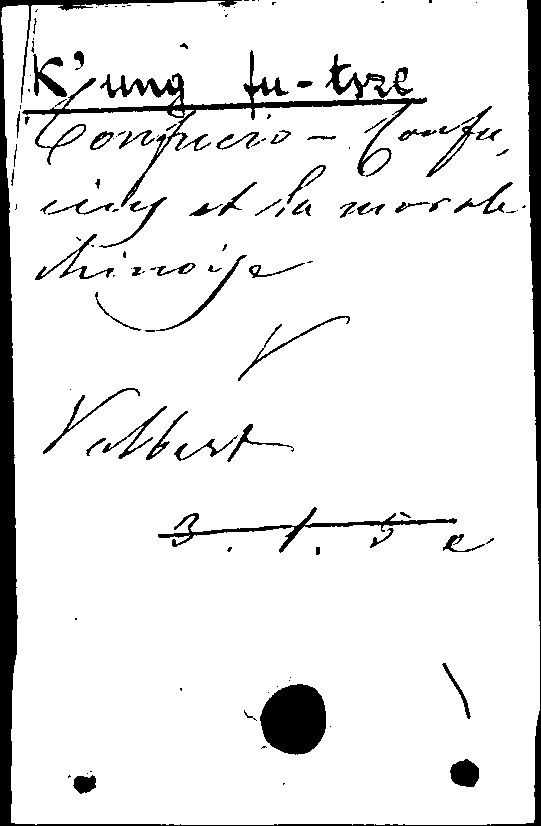 K'ung fu-tsze
Confucio - Confu,
cius et la morale
chinoise
V
Valbert
3. 1. 5 e